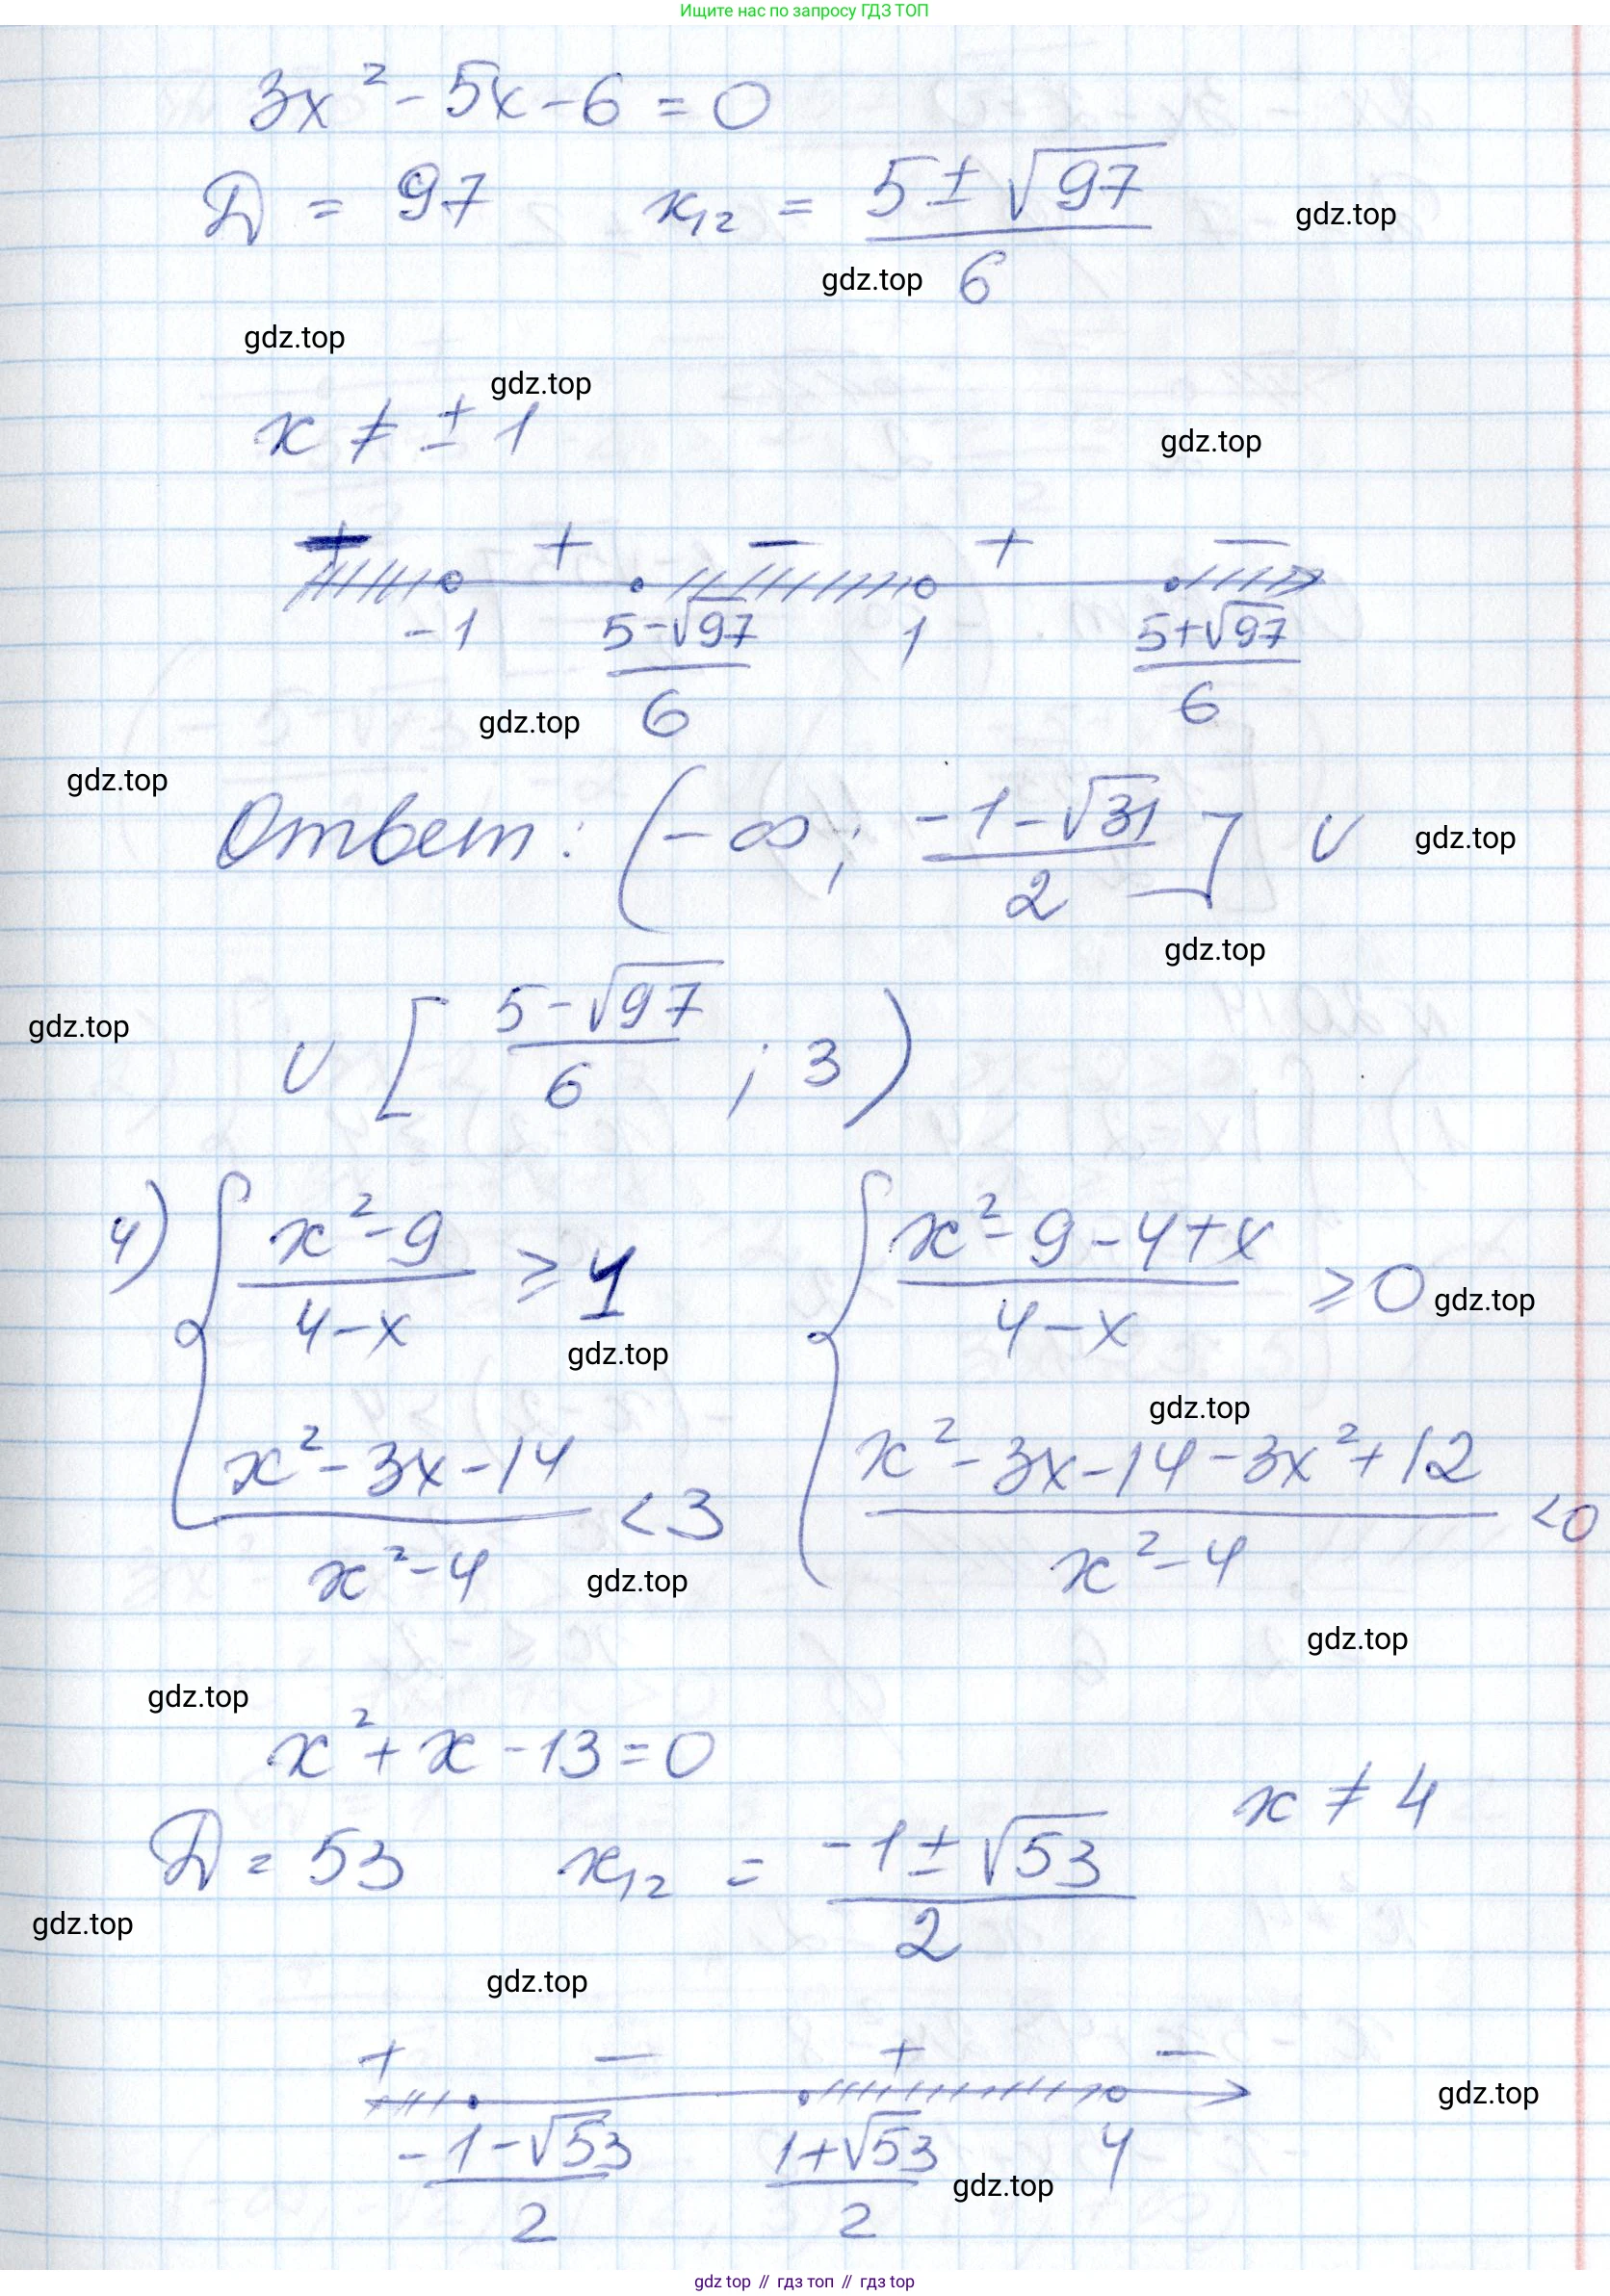 Ищите нас по запросу ГДЗ ТОП
3x² - 5x - 6 = 0
D = 97   x₁₂ = (5 ± √97)/6
gdz.top
gdz.top
gdz.top
gdz.top
x ≠ ± 1
gdz.top
+ − + −
-1   (5-√97)/6   1   (5+√97)/6
gdz.top
gdz.top
Ответ: (-∞; (-1-√31)/2] ∪
gdz.top
gdz.top
∪ [(5-√97)/6 ; 3)
gdz.top
4) { (x²-9)/(4-x) ≥ 1   { (x²-9-4+x)/(4-x) ≥ 0
gdz.top
gdz.top
gdz.top
(x²-3x-14)/(x²-4) < 3   (x²-3x-14-3x²+12)/(x²-4) < 0
gdz.top
gdz.top
gdz.top
x² + x - 13 = 0
x ≠ 4
D = 53   x₁₂ = (-1 ± √53)/2
gdz.top
gdz.top
+ − + −
gdz.top
(-1-√53)/2   (1+√53)/2   4
gdz.top
gdz top // гдз топ // гдз top